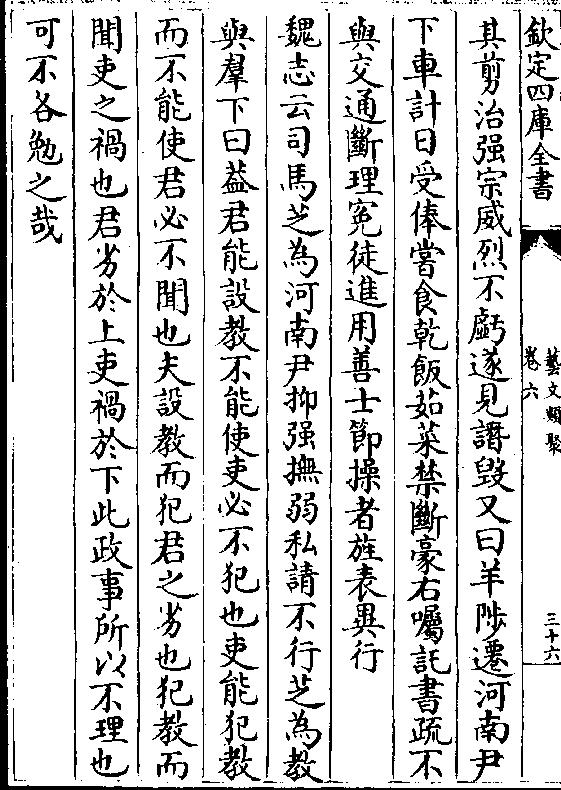 欽定四庫全書
藝文類聚
卷六
三十六
其剪治强宗威烈不虧遂見譖毁又曰羊陟遷河南尹
下車計日受俸嘗食乾飯茹菜禁斷豪右囑託書疏不
與交通斷理寃徒進用善士節操者旌表異行
魏志云司馬芝為河南尹抑强撫弱私請不行芝為教
與羣下曰葢君能設教不能使吏必不犯也吏能犯教
而不能使君必不聞也夫設教而犯君之劣也犯教而
聞吏之禍也君劣於上吏禍於下此政事所以不理也
可不各勉之哉